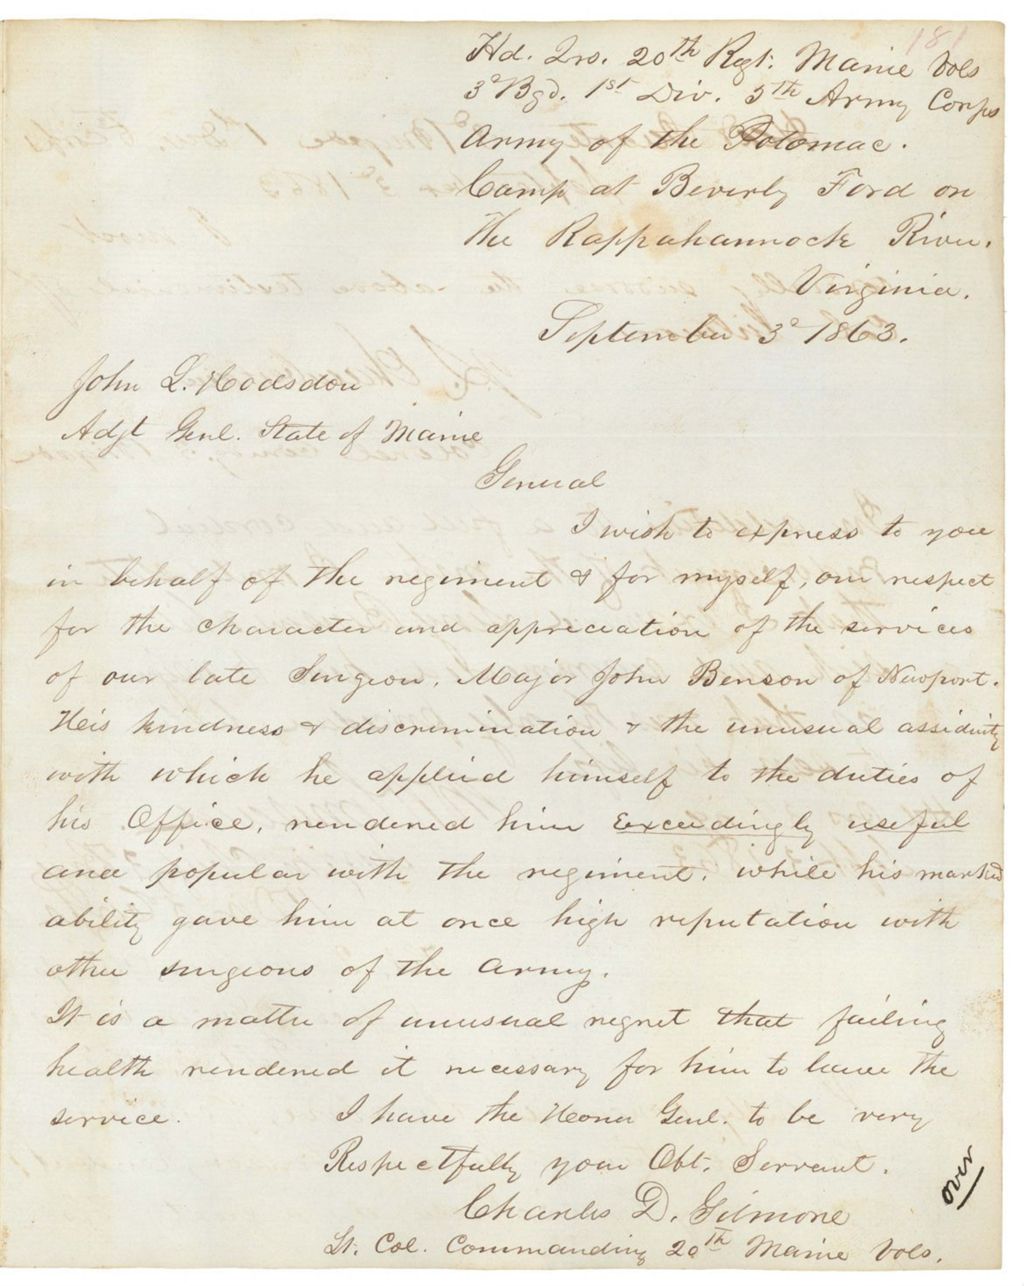 181
Hd. Qrs. 20th Regt. Maine Vols
3d Bgd. 1st Div. 5th Army Corps
Army of the Potomac.
Camp at Beverly Ford on
the Rappahannock River.
Virginia.
September 3d 1863.
John L. Hodsdon
Adjt Genl. State of Maine
General
I wish to express to you
in behalf of the regiment & for myself, our respect
for the character and appreciation of the services
of our late Surgeon, Major John Benson of Newport.
His kindness & discrimination & the unusual assiduity
with which he applied himself to the duties of
his Office, rendered him exceedingly useful
and popular with the regiment, while his marked
ability gave him at once high reputation with
other surgeons of the Army.
It is a matter of unusual regret that failing
health rendered it necessary for him to leave the
service. I have the Honor Genl. to be very
Respectfully your Obt. Servant.
Charles D. Gilmore
Lt. Col. Commanding 20th Maine Vols.
over